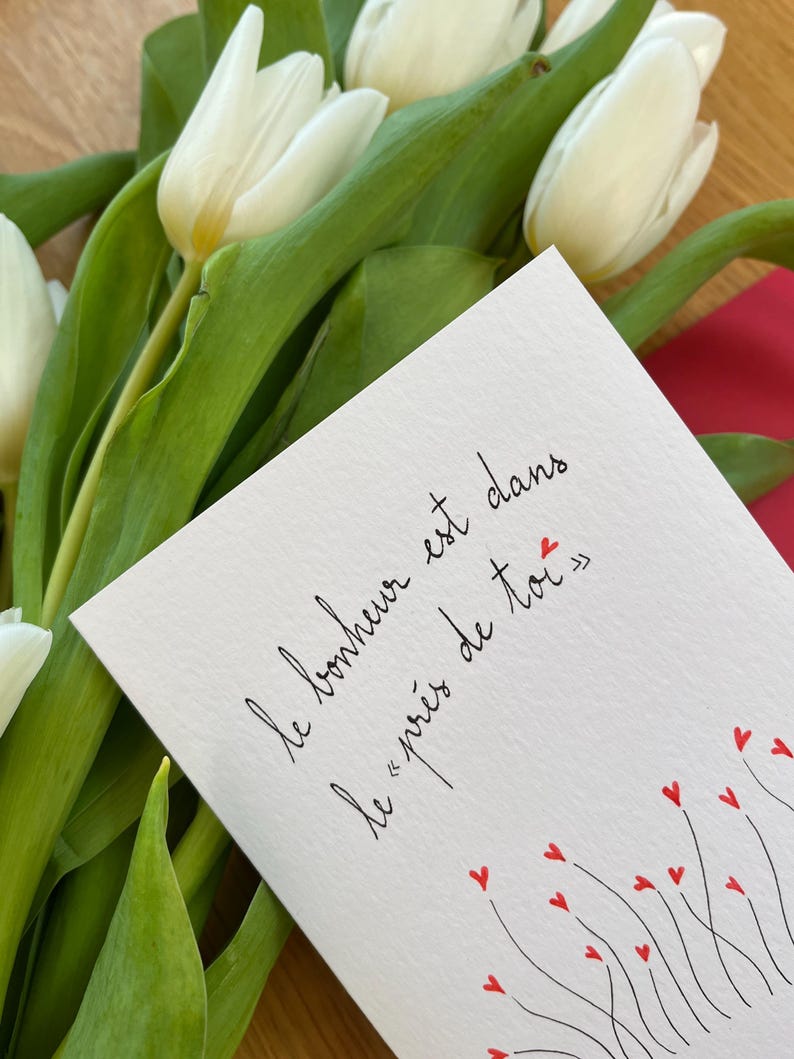 le bonheur est dans
le « près de toi »